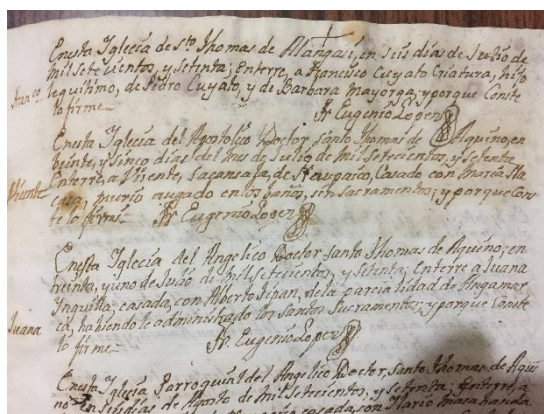 Enesta Iglecia de Sto Thomas de Alangasi, en Seis dias de Julio de
mil Setecientos, y Setenta; Enterre, a Francisco Cuyato Criatura, hijo
Franco legitimo, de Pedro Cuyato, y de Barbara mayorga, y porque Conste
lo firme
Fr Eugenio Lopez
Enesta Iglecia del Doctor Santo Thomas de Aquino, en
beinte, y Sinco dias del mes de Julio de mil Setecientos, y Setenta
Enterre, a Vicente, Casado con
murio augado en los baños, sin Sacramentos; y porque Cons
te lo firme
Fr Eugenio Lopez
Enesta Iglecia del Angelico Doctor Santo Thomas de Aquino; en
treinta, y uno de Julio de mil Setecientos, y Setinta; Enterre a Juana
casada, con Alberto de la parcialidad de Angamar
Juana habiendole administrado los Santos Sacramentos; y porque Conste
lo firme
Fr Eugenio Lopez
Enesta Iglecia Parroquial del Angelico Doctor Santo Thomas de Aqui
no en Seis dias de Agosto de mil Setecientos, y Setenta; Enterre, a
casada, con